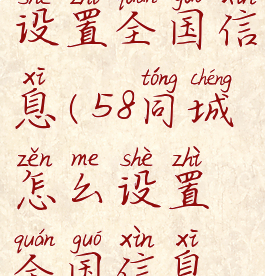 shè zhì quán guó xìn
设置全国信
xī tóng chéng
息(58同城
zěn me shè zhì
怎么设置
quán guó xìn xī
全国信息